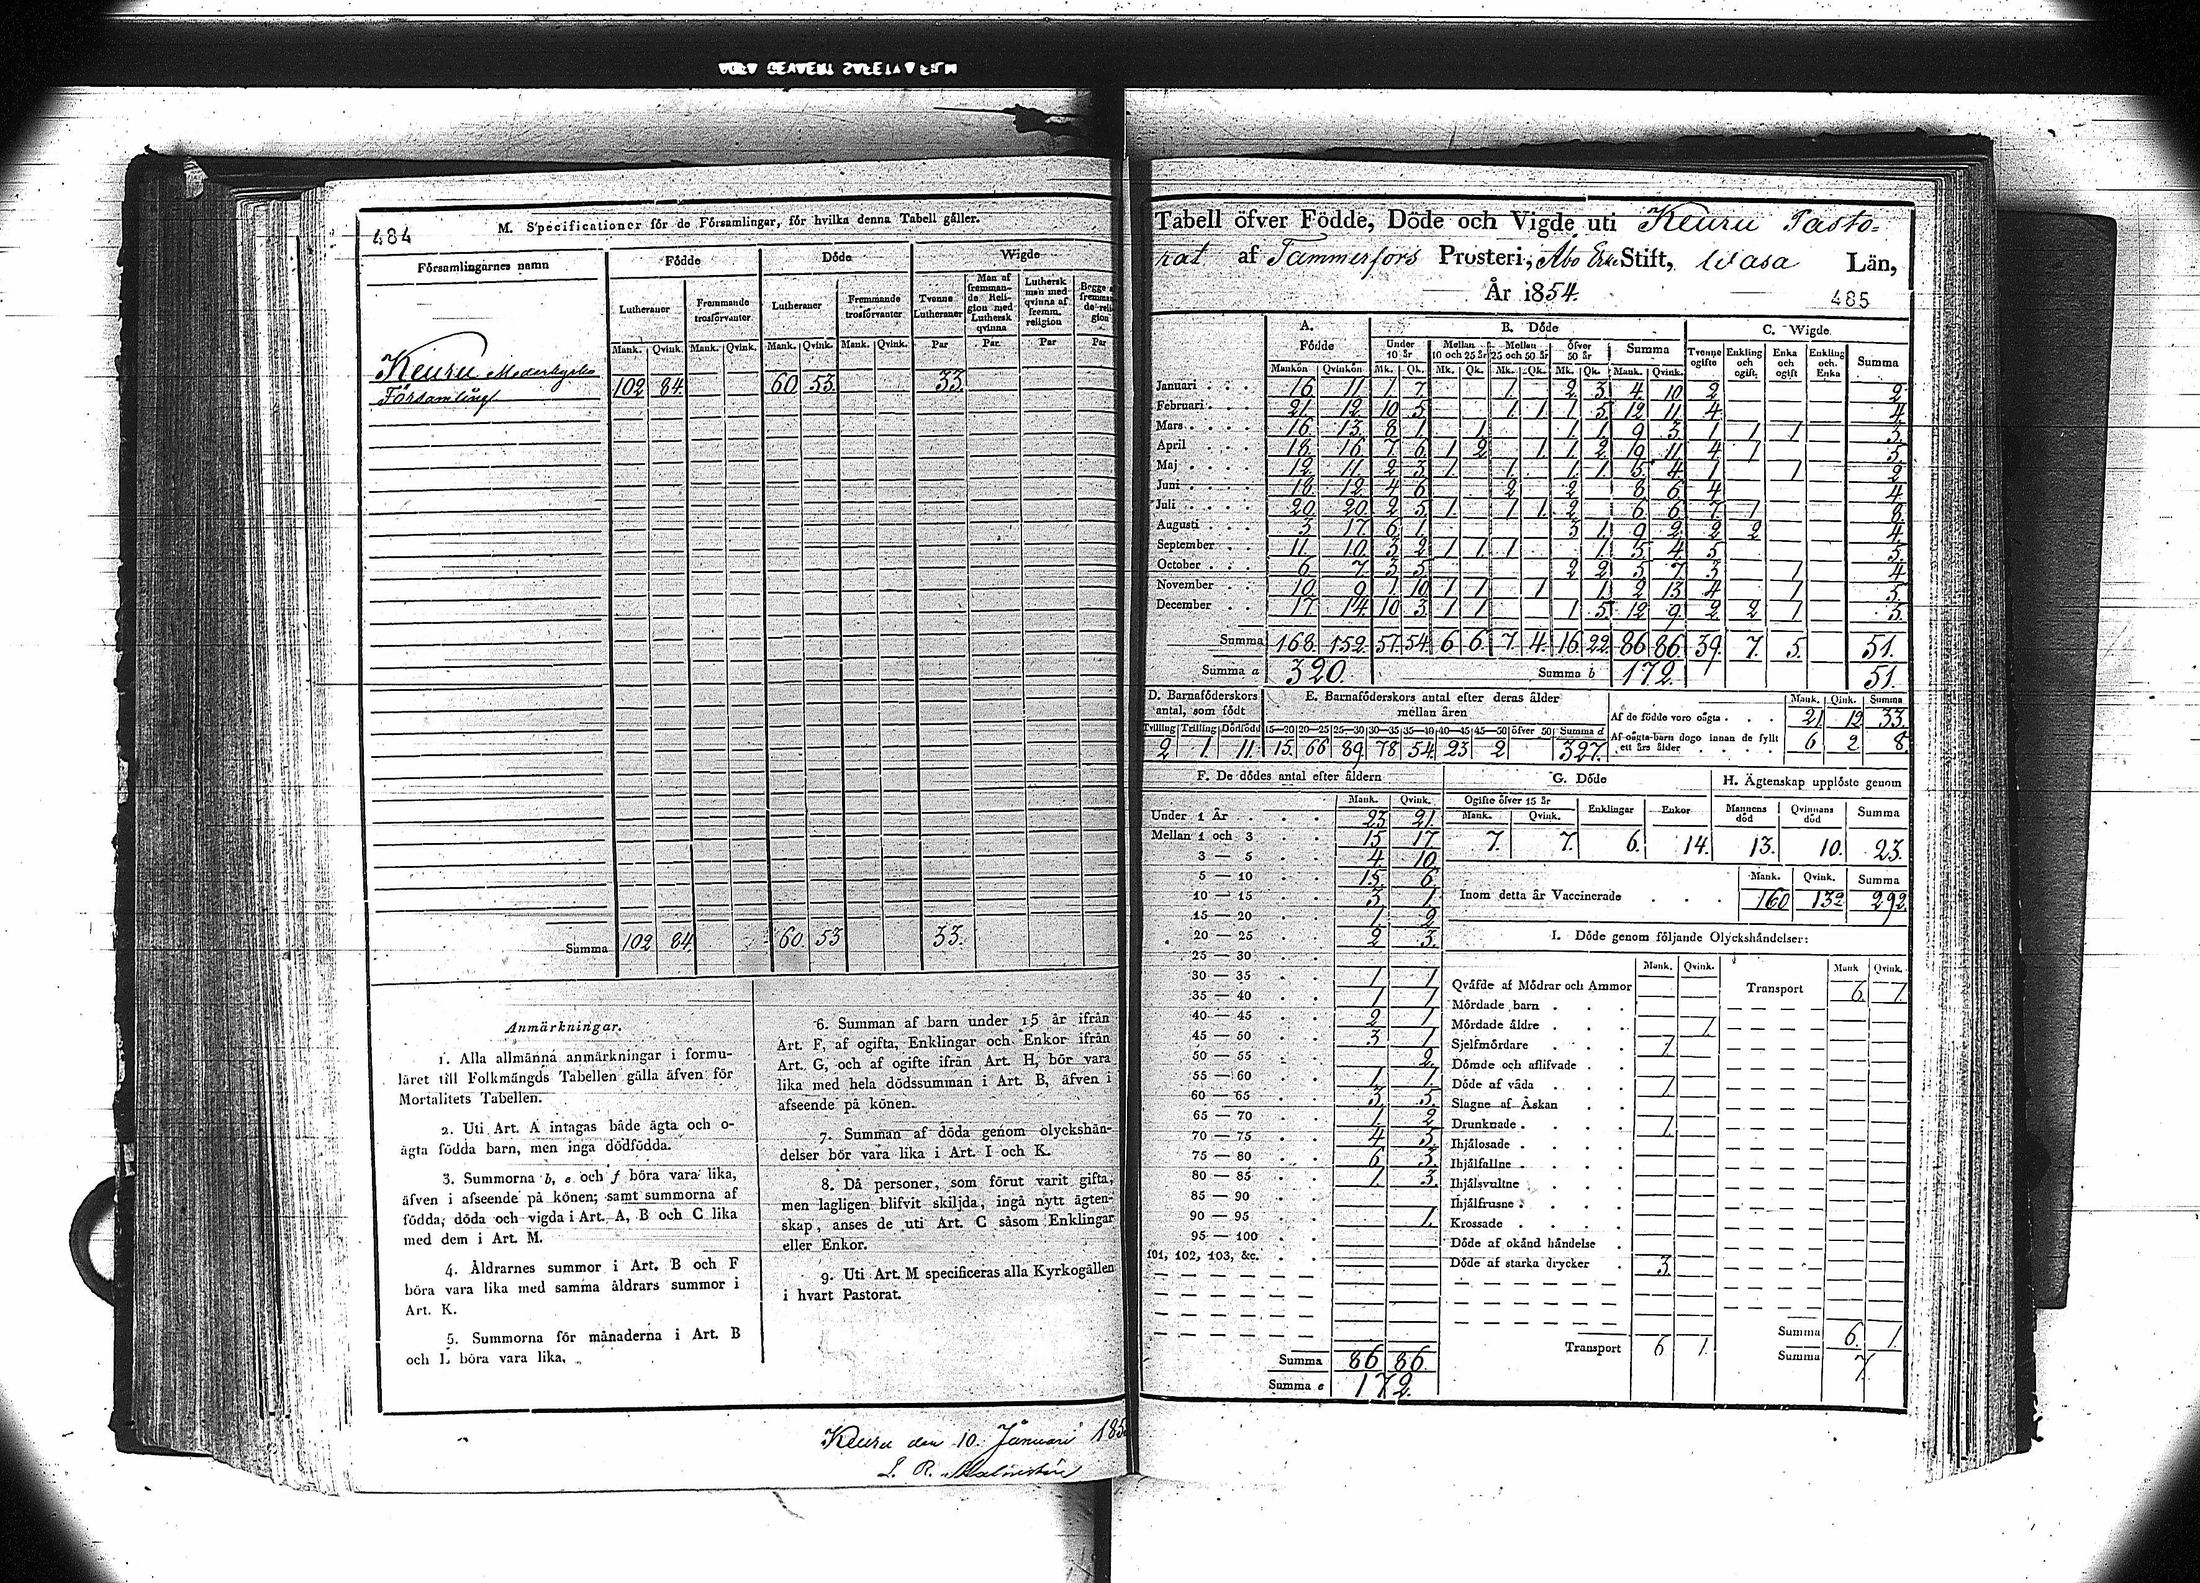 484
M. Specificationer för de Församlingar, för hvilka denna Tabell gäller.
Församlingarnes namn Födde Döde Wigde
Lutheraner Fremmande trosförvanter Lutheraner Fremmande trosförvanter Tvenne Lutheraner Man af fremmande Religion med Luthersk qvinna Luthersk man med qvinna af fremm. religion
Mank. Qvink. Mank. Qvink. Mank. Qvink. Mank. Qvink. Par Par Par Par
Keuru Moderkyrko
Församling 102 84 60 53 33
Summa 102 84 60 53 33.
Anmärkningar.
1. Alla allmänna anmärkningar i formu-
läret till Folkmängds Tabellen gälla äfven för
Mortalitets Tabellen.
2. Uti Art. A intagas både ägta och o-
ägta födda barn, men inga dödfödda.
3. Summorna b, e och f böra vara lika,
äfven i afseende på könen; samt summorna af
födda, döda och vigda i Art. A, B och C lika
med dem i Art. M.
4. Åldrarnes summor i Art. B och F
böra vara lika med samma åldrars summor i
Art. K.
5. Summorna för månaderna i Art. B
och L böra vara lika.
6. Summan af barn under 15 år ifrån
Art. F, af ogifta, Enklingar och Enkor ifrån
Art. G, och af ogifte ifrån Art. H, bör vara
lika med hela dödssumman i Art. B, äfven i
afseende på könen.
7. Summan af döda genom olyckshän-
delser bör vara lika i Art. I och K.
8. Då personer, som förut varit gifta,
men lagligen blifvit skiljda, ingå nytt ägten-
skap, anses de uti Art. C såsom Enklingar
eller Enkor.
9. Uti Art. M specificeras alla Kyrkogällen
i hvart Pastorat.
Keuru den 10. Januari 185
Tabell öfver Födde, Döde och Vigde uti Keuru Pasto-
rat af Tammerfors Prosteri, Åbo Erke Stift, Wasa Län,
År 1854.
485
A. Födde B. Döde C. Wigde
Under 10 år Mellan 10 och 25 år Mellan 25 och 50 år Öfver 50 år Summa Tvenne ogifte Enkling och ogift Enka och ogift Enkling och Enka Summa
Mankön Qvinkön Mk. Qk. Mk. Qk. Mk. Qk. Mk. Qk. Mank. Qvink.
Januari 16 11 1 7 1 2 3 4 10 2 2
Februari 21 12 10 5 1 1 1 5 12 11 4 4
Mars 16 13 8 1 1 1 1 9 3 1 1 1 3
April 18 16 7 6 1 2 1 1 2 19 11 4 1 5
Maj 12 11 2 3 1 1 1 1 5 4 1 1 2
Juni 18 12 4 6 2 2 8 6 4 4
Juli 20 20 2 5 1 1 1 2 6 6 7 1 8
Augusti 3 17 6 1 3 1 9 2 2 2 4
September 11 10 3 2 1 1 1 1 5 4 5 5
October 6 7 3 5 2 2 5 7 3 1 4
November 10 9 1 10 1 1 1 1 2 13 4 1 5
December 17 14 10 3 1 1 1 5 12 9 2 2 1 5
Summa 168 152 57 54 6 6 7 4 16 22 86 86 39 7 5 51.
Summa a 320 Summa b 172 51.
D. Barnaföderskors antal, som födt E. Barnaföderskors antal efter deras ålder mellan åren Mank. Qink. Summa
Af de födde voro oägta 21 12 33
Tvilling Trilling Dödfödd 15—20 20—25 25—30 30—35 35—40 40—45 45—50 öfver 50 Summa d
Af oägta barn dogo innan de fyllt ett års ålder 6 2 8
2 1 11 15 66 89 78 54 23 2 327
F. De dödes antal efter åldern
Mank. Qvink.
Under 1 År 23 21
Mellan 1 och 3 15 17
3 — 5 4 10
5 — 10 15 6
10 — 15 3 1
15 — 20 1 2
20 — 25 2 3
25 — 30
30 — 35 1 1
35 — 40 1 1
40 — 45 2 1
45 — 50 3 1
50 — 55 2
55 — 60 1 1
60 — 65 3 5
65 — 70 1 2
70 — 75 4 3
75 — 80 6 3
80 — 85 1 3
85 — 90
90 — 95 1
95 — 100
101, 102, 103, &c.
Summa 86 86
Summa e 172
G. Döde
Ogifte öfver 15 år Enklingar Enkor
Mank. Qvink.
7. 7. 6. 14.
H. Ägtenskap upplöste genom
Mannens död Qvinnans död Summa
13. 10. 23.
Mank. Qvink. Summa
Inom detta år Vaccinerade 160 132 292
I. Döde genom följande Olyckshändelser:
Mank. Qvink. Mank Qvink.
Qväfde af Mödrar och Ammor Transport 6 1
Mördade barn
Mördade äldre 1
Sjelfmördare 1
Dömde och aflifvade
Döde af våda 1
Slagne af Åskan
Drunknade 1
Ihjälosade
Ihjälfallne
Ihjälsvultne
Ihjälfrusne
Krossade
Döde af okänd händelse
Döde af starka drycker 3
Transport 6 1
Summa 6. 1.
Summa 7